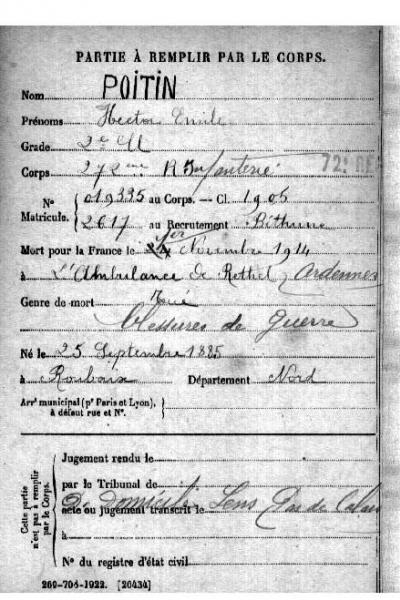 PARTIE À REMPLIR PAR LE CORPS.
Nom POITIN
Prénoms Hector Emile
Grade 2e Cl
Corps 272ème R Infanterie 72e
N° Matricule. 019335 au Corps. — Cl. 1905
2617 au Recrutement Béthune
Mort pour la France le 1er Novembre 1914
à L'Ambulance de Rethel Ardennes
Genre de mort
Blessures de guerre
Né le 25 Septembre 1885
à Roubaix Département Nord
Arrt municipal (pr Paris et Lyon), à défaut rue et N°.
Cette partie n'est pas à remplir par le Corps.
Jugement rendu le
par le Tribunal de
De Domicile Lens Pas de Calais
acte ou jugement transcrit le
à
N° du registre d'état civil
260-708-1922. [26434]